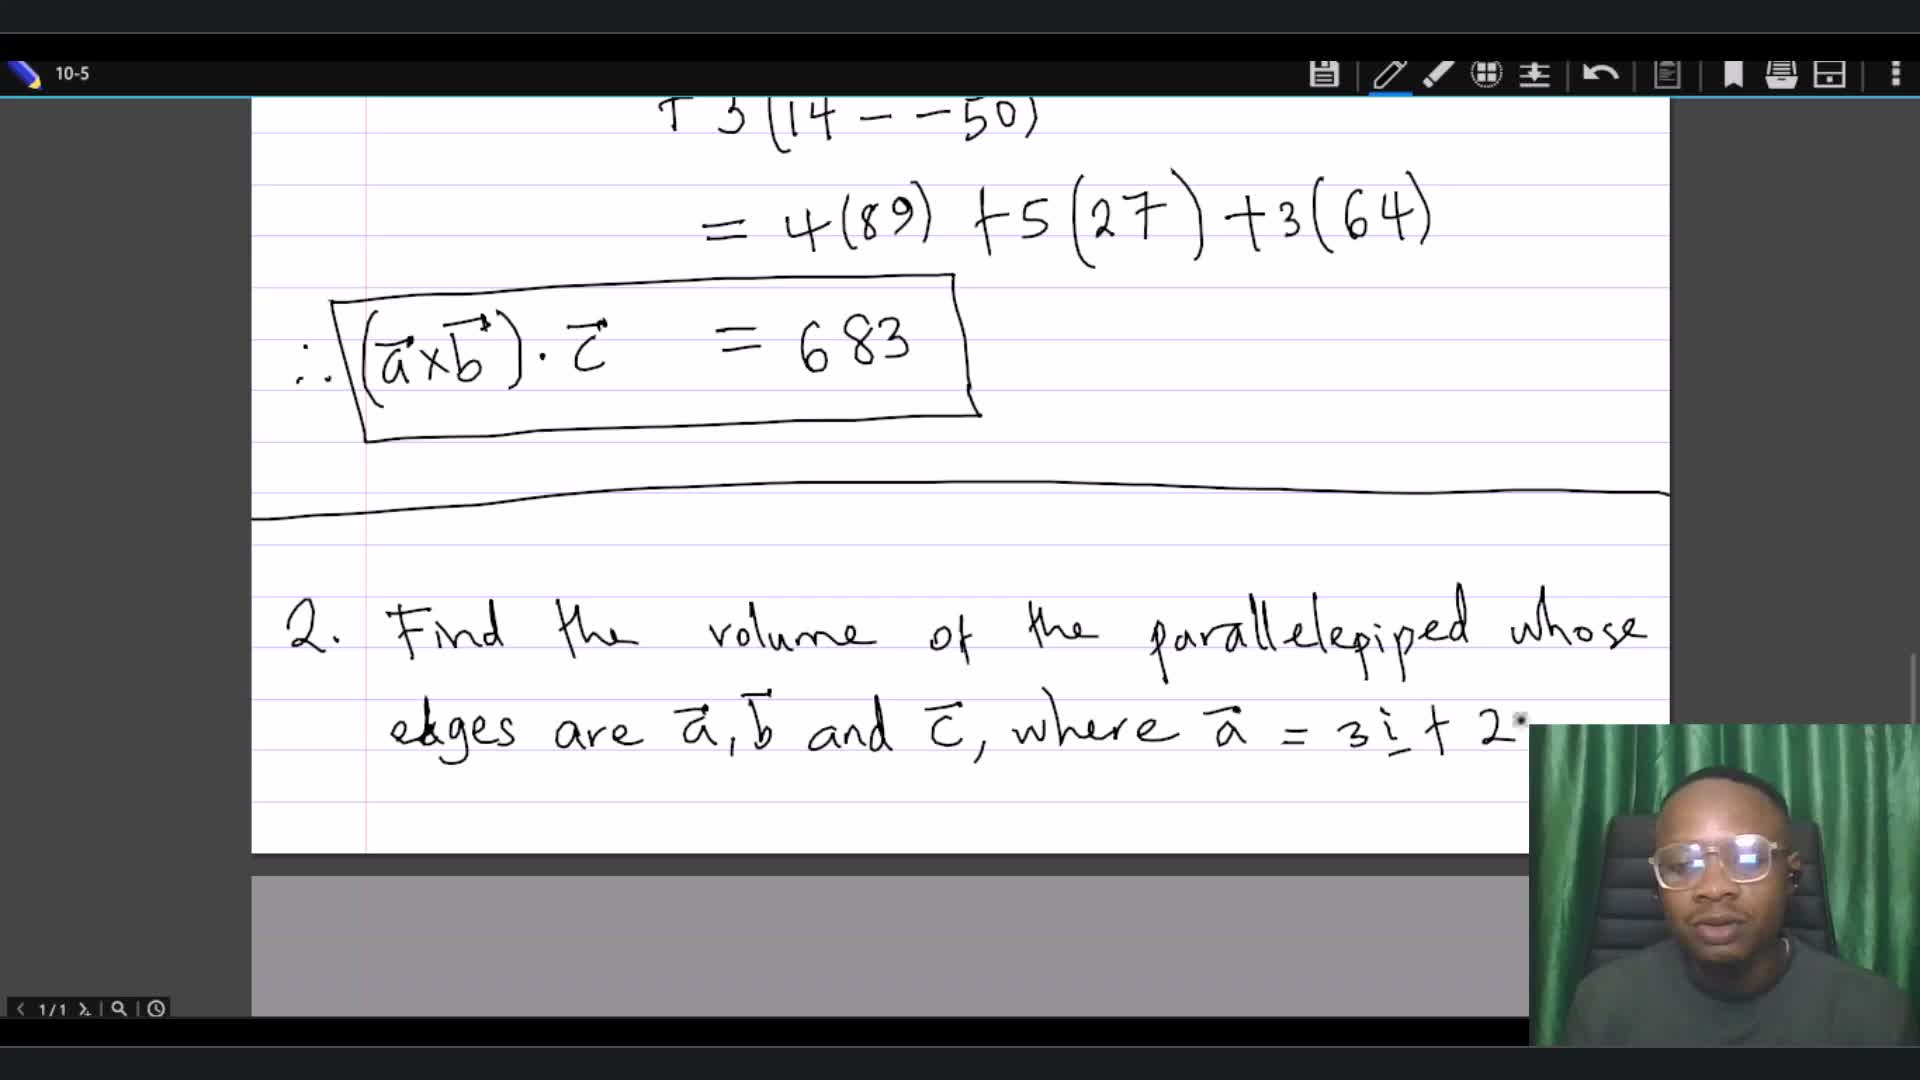 10-5
+ 3(14 - -50)
= 4(89) +5(27) +3(64)
∴ (a⃗×b⃗)·c⃗ = 683
2. Find the volume of the parallelepiped whose
edges are a⃗, b⃗ and c⃗, where a⃗ = 3i + 2
1/1